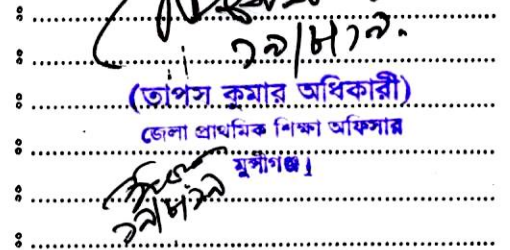 ১৯/৮/১৯.
(তাপস কুমার অধিকারী)
জেলা প্রাথমিক শিক্ষা অফিসার
মুন্সীগঞ্জ।
১৯/৮/১৯